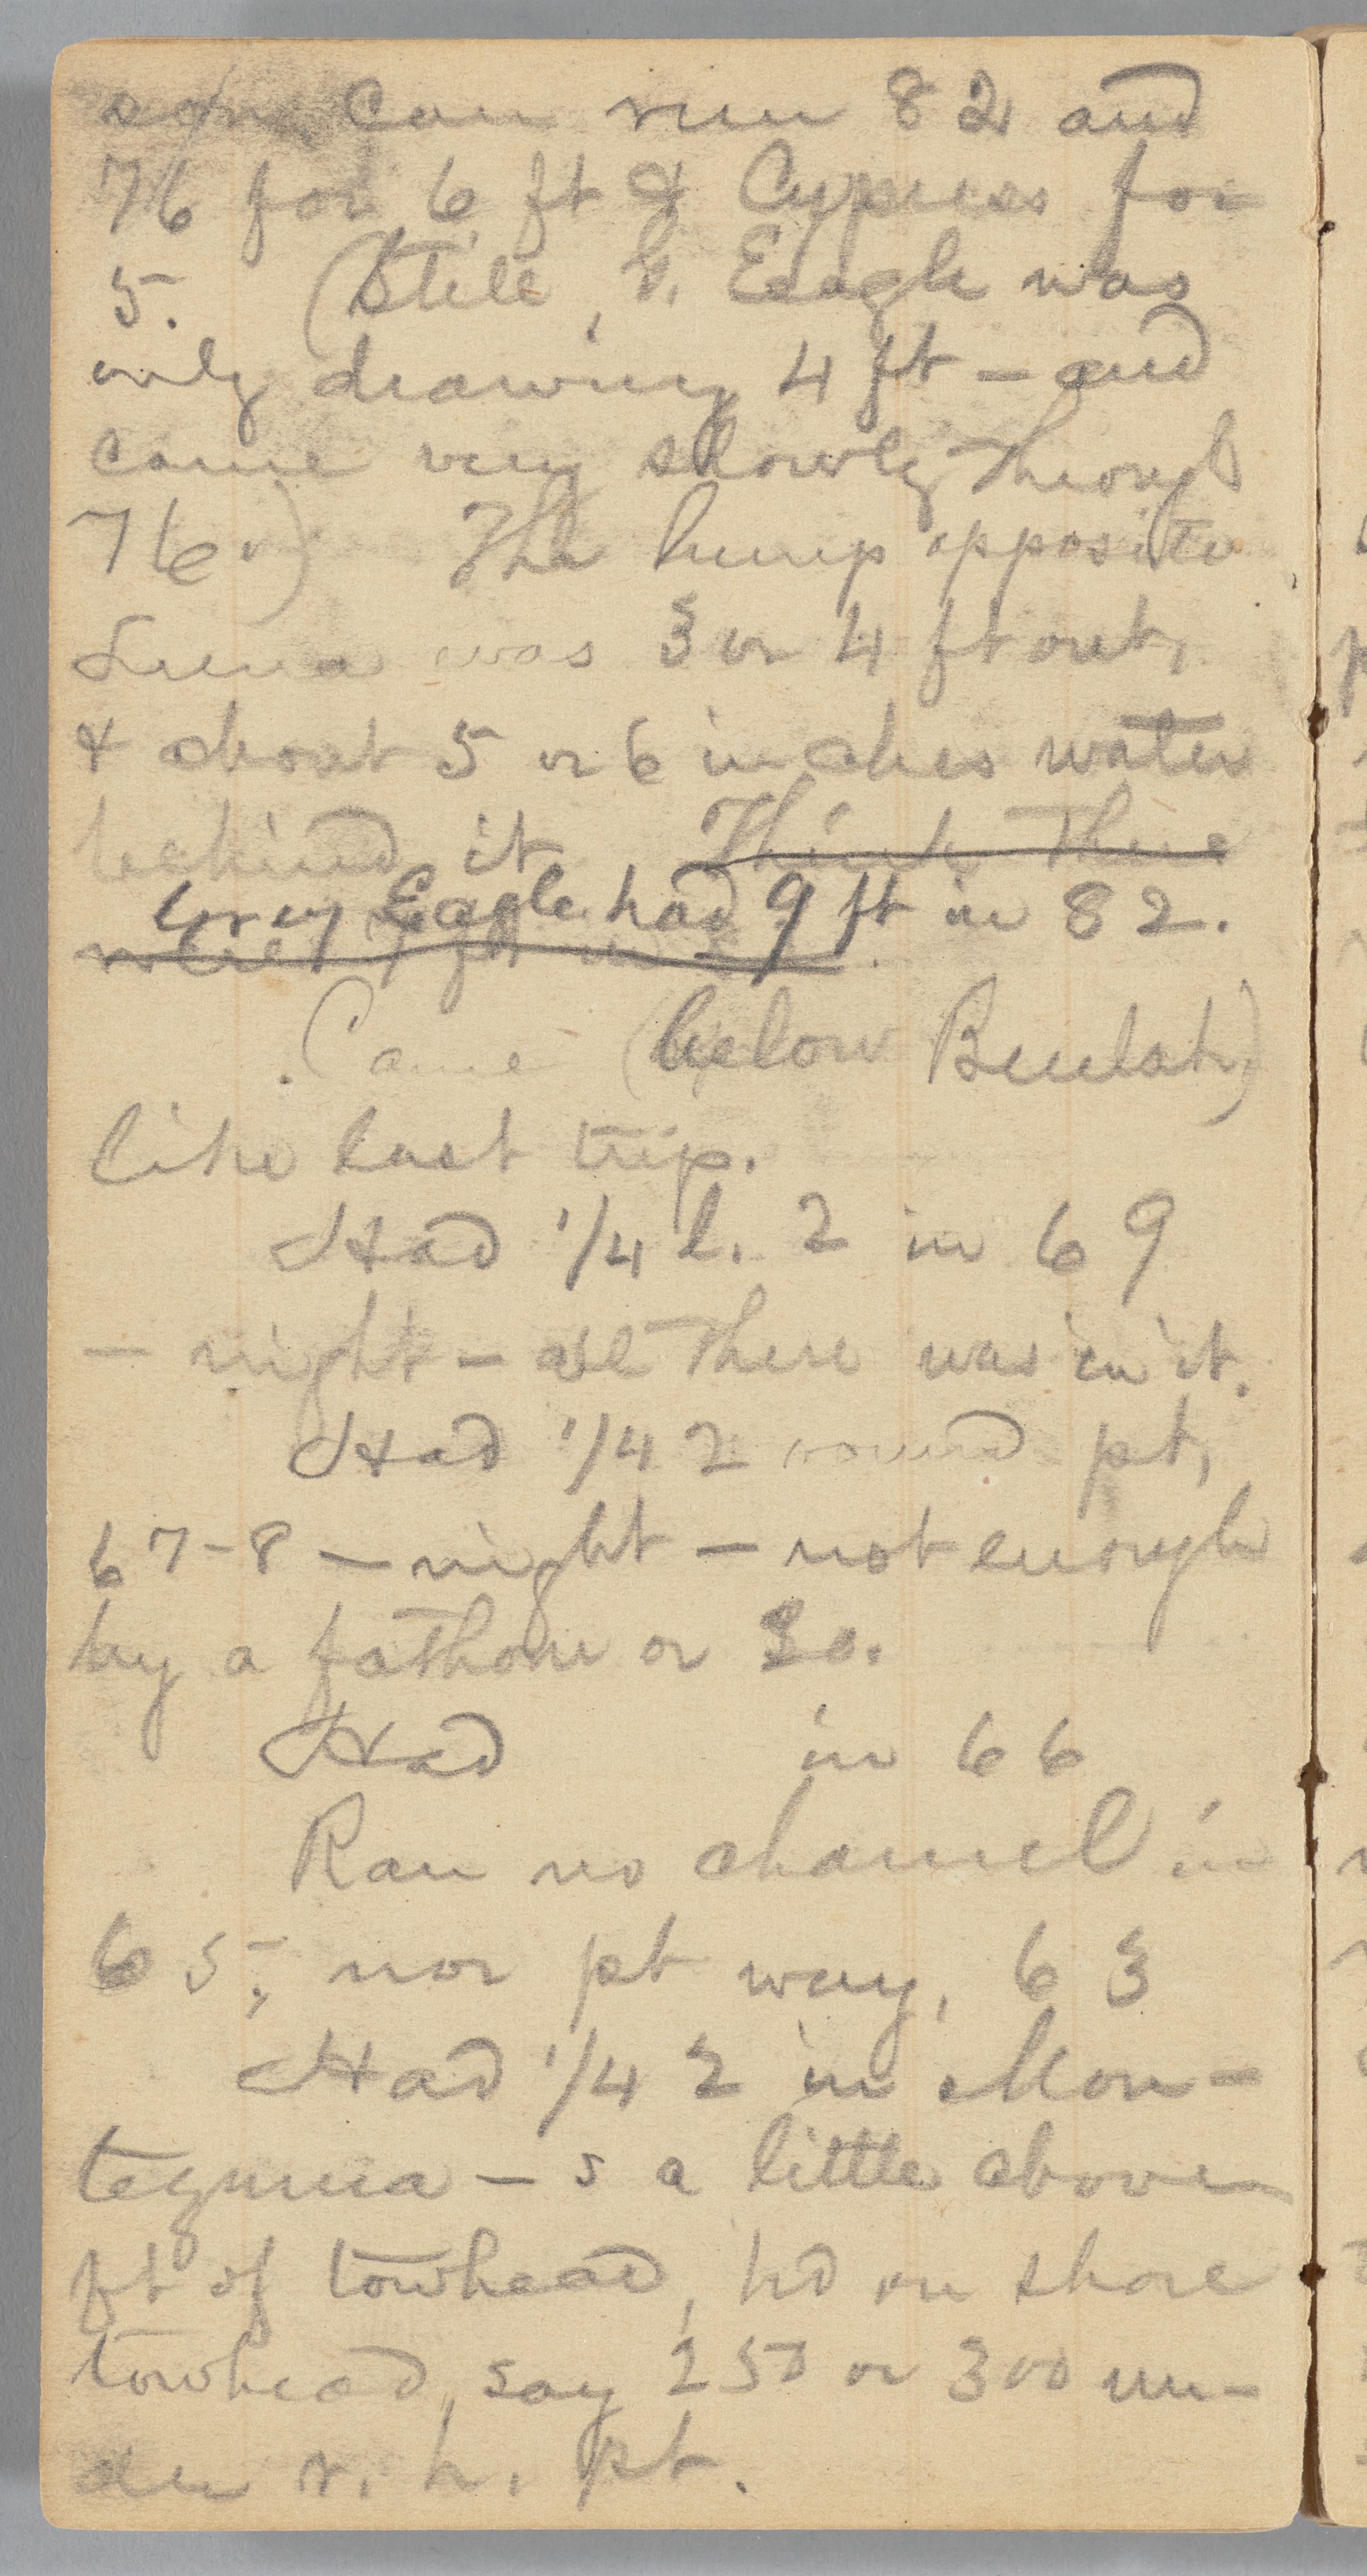 son can run 82 and
76 for 6 ft & Cypress for
5. (Still, G. Eagle was
only drawing 4 ft — and
came very slowly through
76.) The hump opposite
Luna was 3 or 4 ft out,
& about 5 or 6 inches water
behind it. Think there
Grey Eagle had 9 ft in 82.
were
Came (below Beulah)
like last trip.
Had 1/4 l. 2 in 69
— night — all there was in it.
Had 1/4 2 round pt,
67-8 — night — not enough
by a fathom or so.
Had in 66
Ran no channel in
65; nor pt way, 63
Had 1/4 2 in Mon-
tezuma — s a little above
ft of towhead, hd on shore
towhead, say 250 or 300 un-
der r. h. pt.